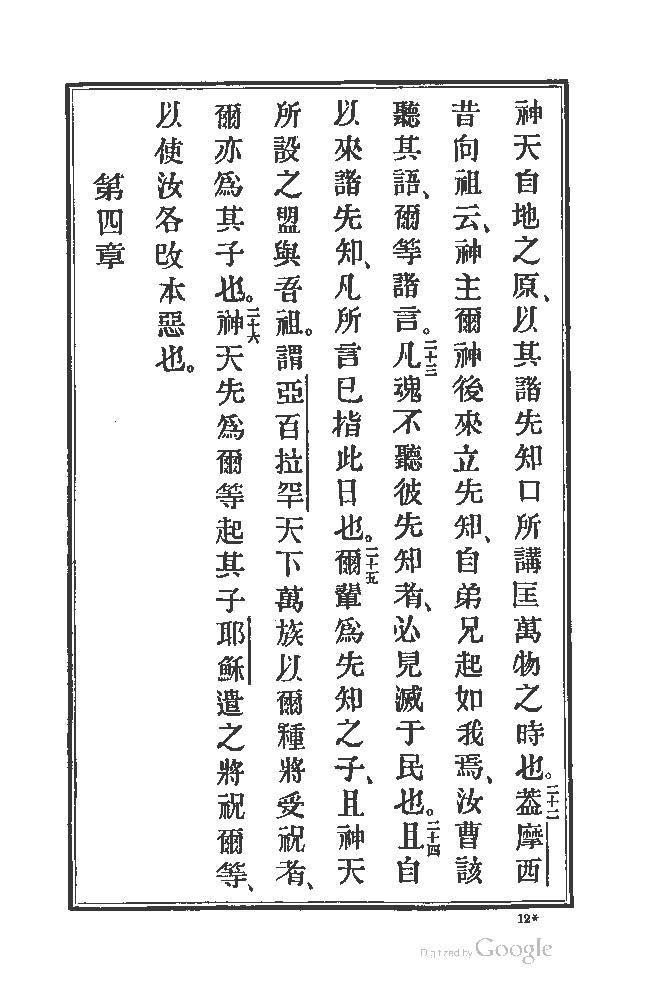 神天自地之原、以其諸先知口所講匡萬物之時也。二十二葢摩西
昔向祖云、神主爾神後來立先知、自弟兄起如我焉、汝曹該
聽其語、爾等諸言。二十三凡魂不聽彼先知者、必見滅于民也。二十四且自
以來諸先知、凡所言已指此日也。二十五爾輩爲先知之子、且神天
所設之盟與吾祖。謂亞百拉罕天下萬族以爾種將受祝者、
爾亦爲其子也。二十六神天先爲爾等起其子耶穌遣之將祝爾等、
以使汝各改本惡也。
第四章
12*
Digitized by Google